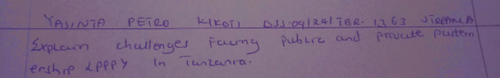 YASINTA PETRO KIKOTI DJS.04/24/TBR.1363 DIPLOMA
Explain challenges Facing Public and private partern
ership LPPPY in Tanzania.